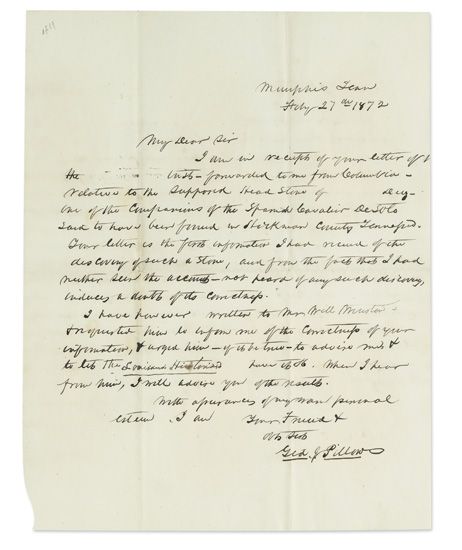 Memphis Tenn
Feby 27th 1872
My Dear Sir
I am in receipt of your letter of
the inst- forwarded to me from Columbia-
relative to the supposed Head Stone of
one of the Companions of the Spanish Cavalier DeSoto
said to have been found in Hickman County Tennessee.
Your letter is the first information I had received of the
discovery of such a stone, and from the fact that I had
neither seen the account- nor heard of any such discovery,
induces a doubt of its correctness.
I have however written to Mr Will
& requested him to inform me of the correctness of your
information, & urged him- if it be true- to advise me, &
to let the Louisiana have it. When I hear
from him, I will advise you of the results.
With assurances of my warm personal
esteem I am Your Friend &
Obt Svt
Gid. J. Pillow